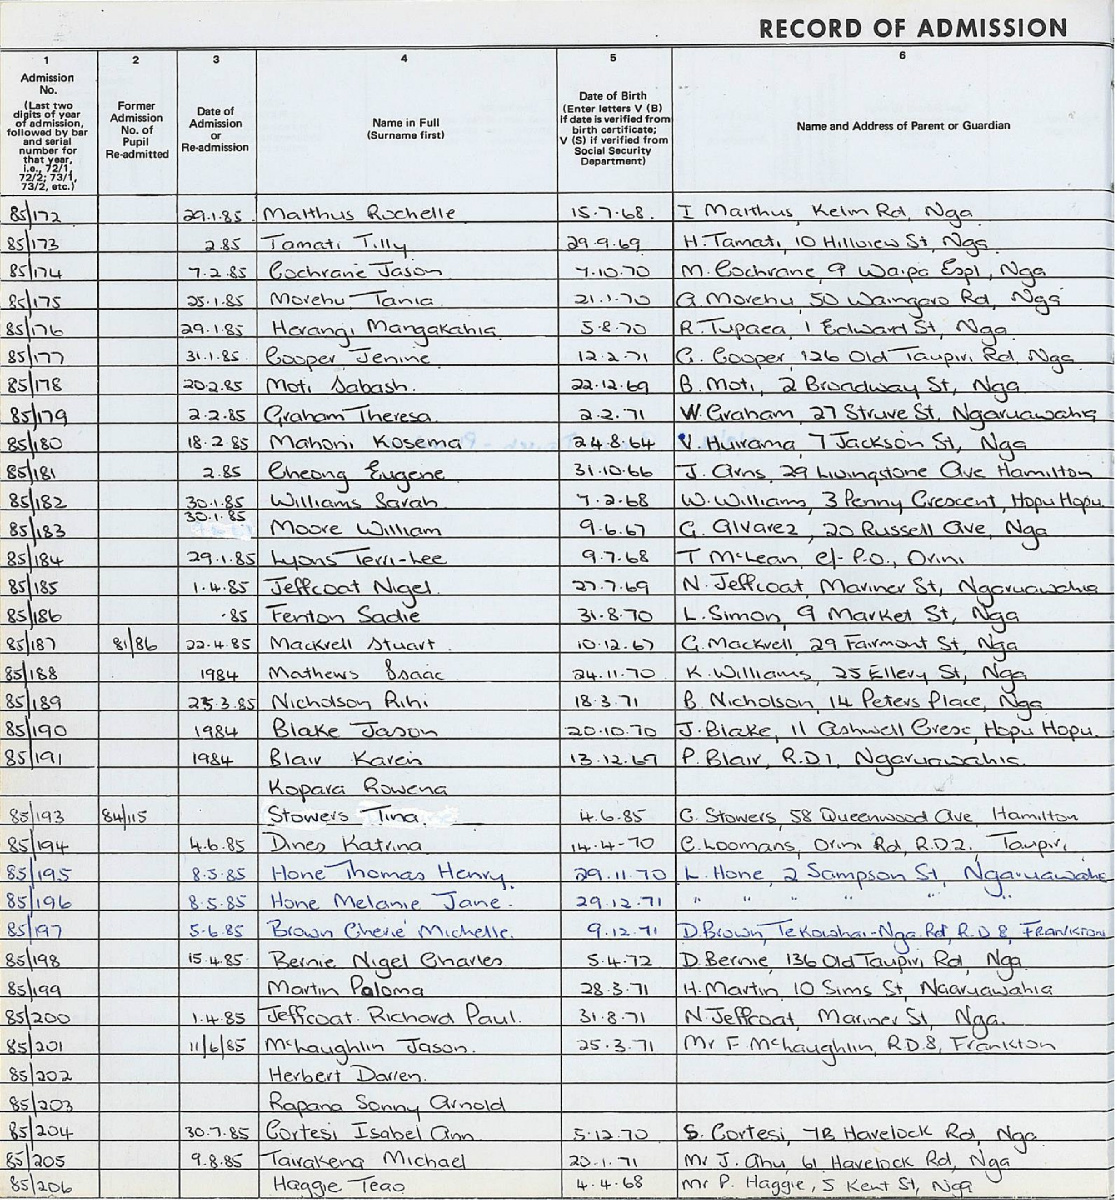 RECORD OF ADMISSION
1 2 3 4 5 6
Admission No. (Last two digits of year of admission, followed by bar and serial number for that year, i.e., 72/1, 72/2; 73/1, 73/2, etc.)
Former Admission No. of Pupil Re-admitted
Date of Admission or Re-admission
Name in Full (Surname first)
Date of Birth (Enter letters V (B) if date is verified from birth certificate; V (S) if verified from Social Security Department)
Name and Address of Parent or Guardian
85/172 29.1.85 Malthus Rochelle 15.7.68. I Malthus, Kelm Rd, Nga
85/173 2.85 Tamati Tilly 29.9.69 H. Tamati, 10 Hillview St, Nga
85/174 7.2.85 Cochrane Jason 7.10.70 M. Cochrane 9 Waipa Espl, Nga
85/175 25.1.85 Morehu Tania 21.1.70 G. Morehu, 50 Waingaro Rd, Nga
85/176 29.1.85 Herangi Mangakahia 5.8.70 R. Tupaea, 1 Edward St, Nga
85/177 31.1.85. Cooper Jenine 12.2.71 G. Cooper, 126 Old Taupiri Rd, Nga
85/178 20.2.85 Moti Sabash. 22.12.69 B. Moti, 2 Broadway St, Nga
85/179 2.2.85 Graham Theresa 2.2.71 W. Graham, 27 Struve St, Ngaruawahia
85/180 18.2.85 Mahoni Kosema 24.8.64 V. Huirama, 7 Jackson St, Nga
85/181 2.85 Cheong Eugene 31.10.66 J. Arns, 29 Livingstone Ave Hamilton
85/182 30.1.85 Williams Sarah 7.2.68 W. Williams, 3 Penny Crescent, Hopu Hopu.
85/183 30.1.85 Moore William 9.6.67 G. Alvarez, 20 Russell Ave, Nga
85/184 29.1.85 Lyons Terri-Lee 9.7.68 T McLean, c/- P.O., Orini
85/185 1.4.85 Jeffcoat Nigel. 27.7.69 N. Jeffcoat, Mariner St, Ngaruawahia
85/186 .85 Fenton Sadie 31.8.70 L. Simon, 9 Market St, Nga
85/187 81/86 22.4.85 Mackrell Stuart 10.12.67 G. Mackrell, 29 Fairmont St, Nga
85/188 1984 Mathews Isaac 24.11.70 K. Williams, 25 Ellery St, Nga
85/189 25.3.85 Nicholson Rihi 18.3.71 B. Nicholson, 14 Peters Place, Nga
85/190 1984 Blake Jason 20.10.70 J. Blake, 11 Ashwell Cresc, Hopu Hopu.
85/191 1984 Blair Karen 13.12.69 P. Blair, R.D 1, Ngaruawahia.
Kopara Rowena
85/193 84/115 Stowers Tina. 4.6.85 C. Stowers, 58 Queenwood Ave, Hamilton
85/194 4.6.85 Dines Katrina 14.4-70 C. Loomans, Orini Rd, R.D 2, Taupiri,
85/195 8.5.85 Hone Thomas Henry. 29.11.70 L. Hone, 2 Sampson St, Ngaruawahia
85/196 8.5.85 Hone Melanie Jane. 29.12.71 " " " " "
85/197 5-6.85 Brown Cherie Michelle. 9.12.71 D. Brown, Te Kowhai-Nga. Rd, R.D 8, Frankton
85/198 15.4.85 Bernie Nigel Charles 5.4.72 D. Bernie, 136 Old Taupiri Rd, Nga
85/199 Martin Paloma 28.3.71 H. Martin, 10 Sims St, Ngaruawahia
85/200 1.4.85 Jeffcoat. Richard Paul. 31.8.71 N. Jeffcoat, Mariner St, Nga.
85/201 11/6/85 McLaughlin Jason. 25.3.71 Mr F. McLaughlin, R.D 8, Frankton
85/202 Herbert Darren.
85/203 Rapana Sonny Arnold
85/204 30.7.85 Cortesi Isabel Ann 5.12.70 S. Cortesi, 7B Havelock Rd, Nga
85/205 9.8.85 Tairakena Michael 20.1.71 Mr J. Ahu, 61 Havelock Rd, Nga
85/206 Haggie Teao 4.4.68 Mr P. Haggie, 5 Kent St, Nga